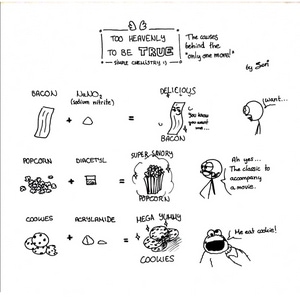 TOO HEAVENLY
TO BE TRUE
SIMPLE CHEMISTRY :)
The causes
behind the
"only one more!"
by Seri
BACON
NaNO₂
(sodium nitrite)
DELICIOUS
+
=
You know
you want
me...
BACON
I want...
POPCORN
DIACETYL
SUPER SAVORY
+
=
POPCORN
Ah yes...
The classic to
accompany
a movie.
COOKIES
ACRYLAMIDE
MEGA YUMMY
+
=
COOKIES
Me eat cookie!